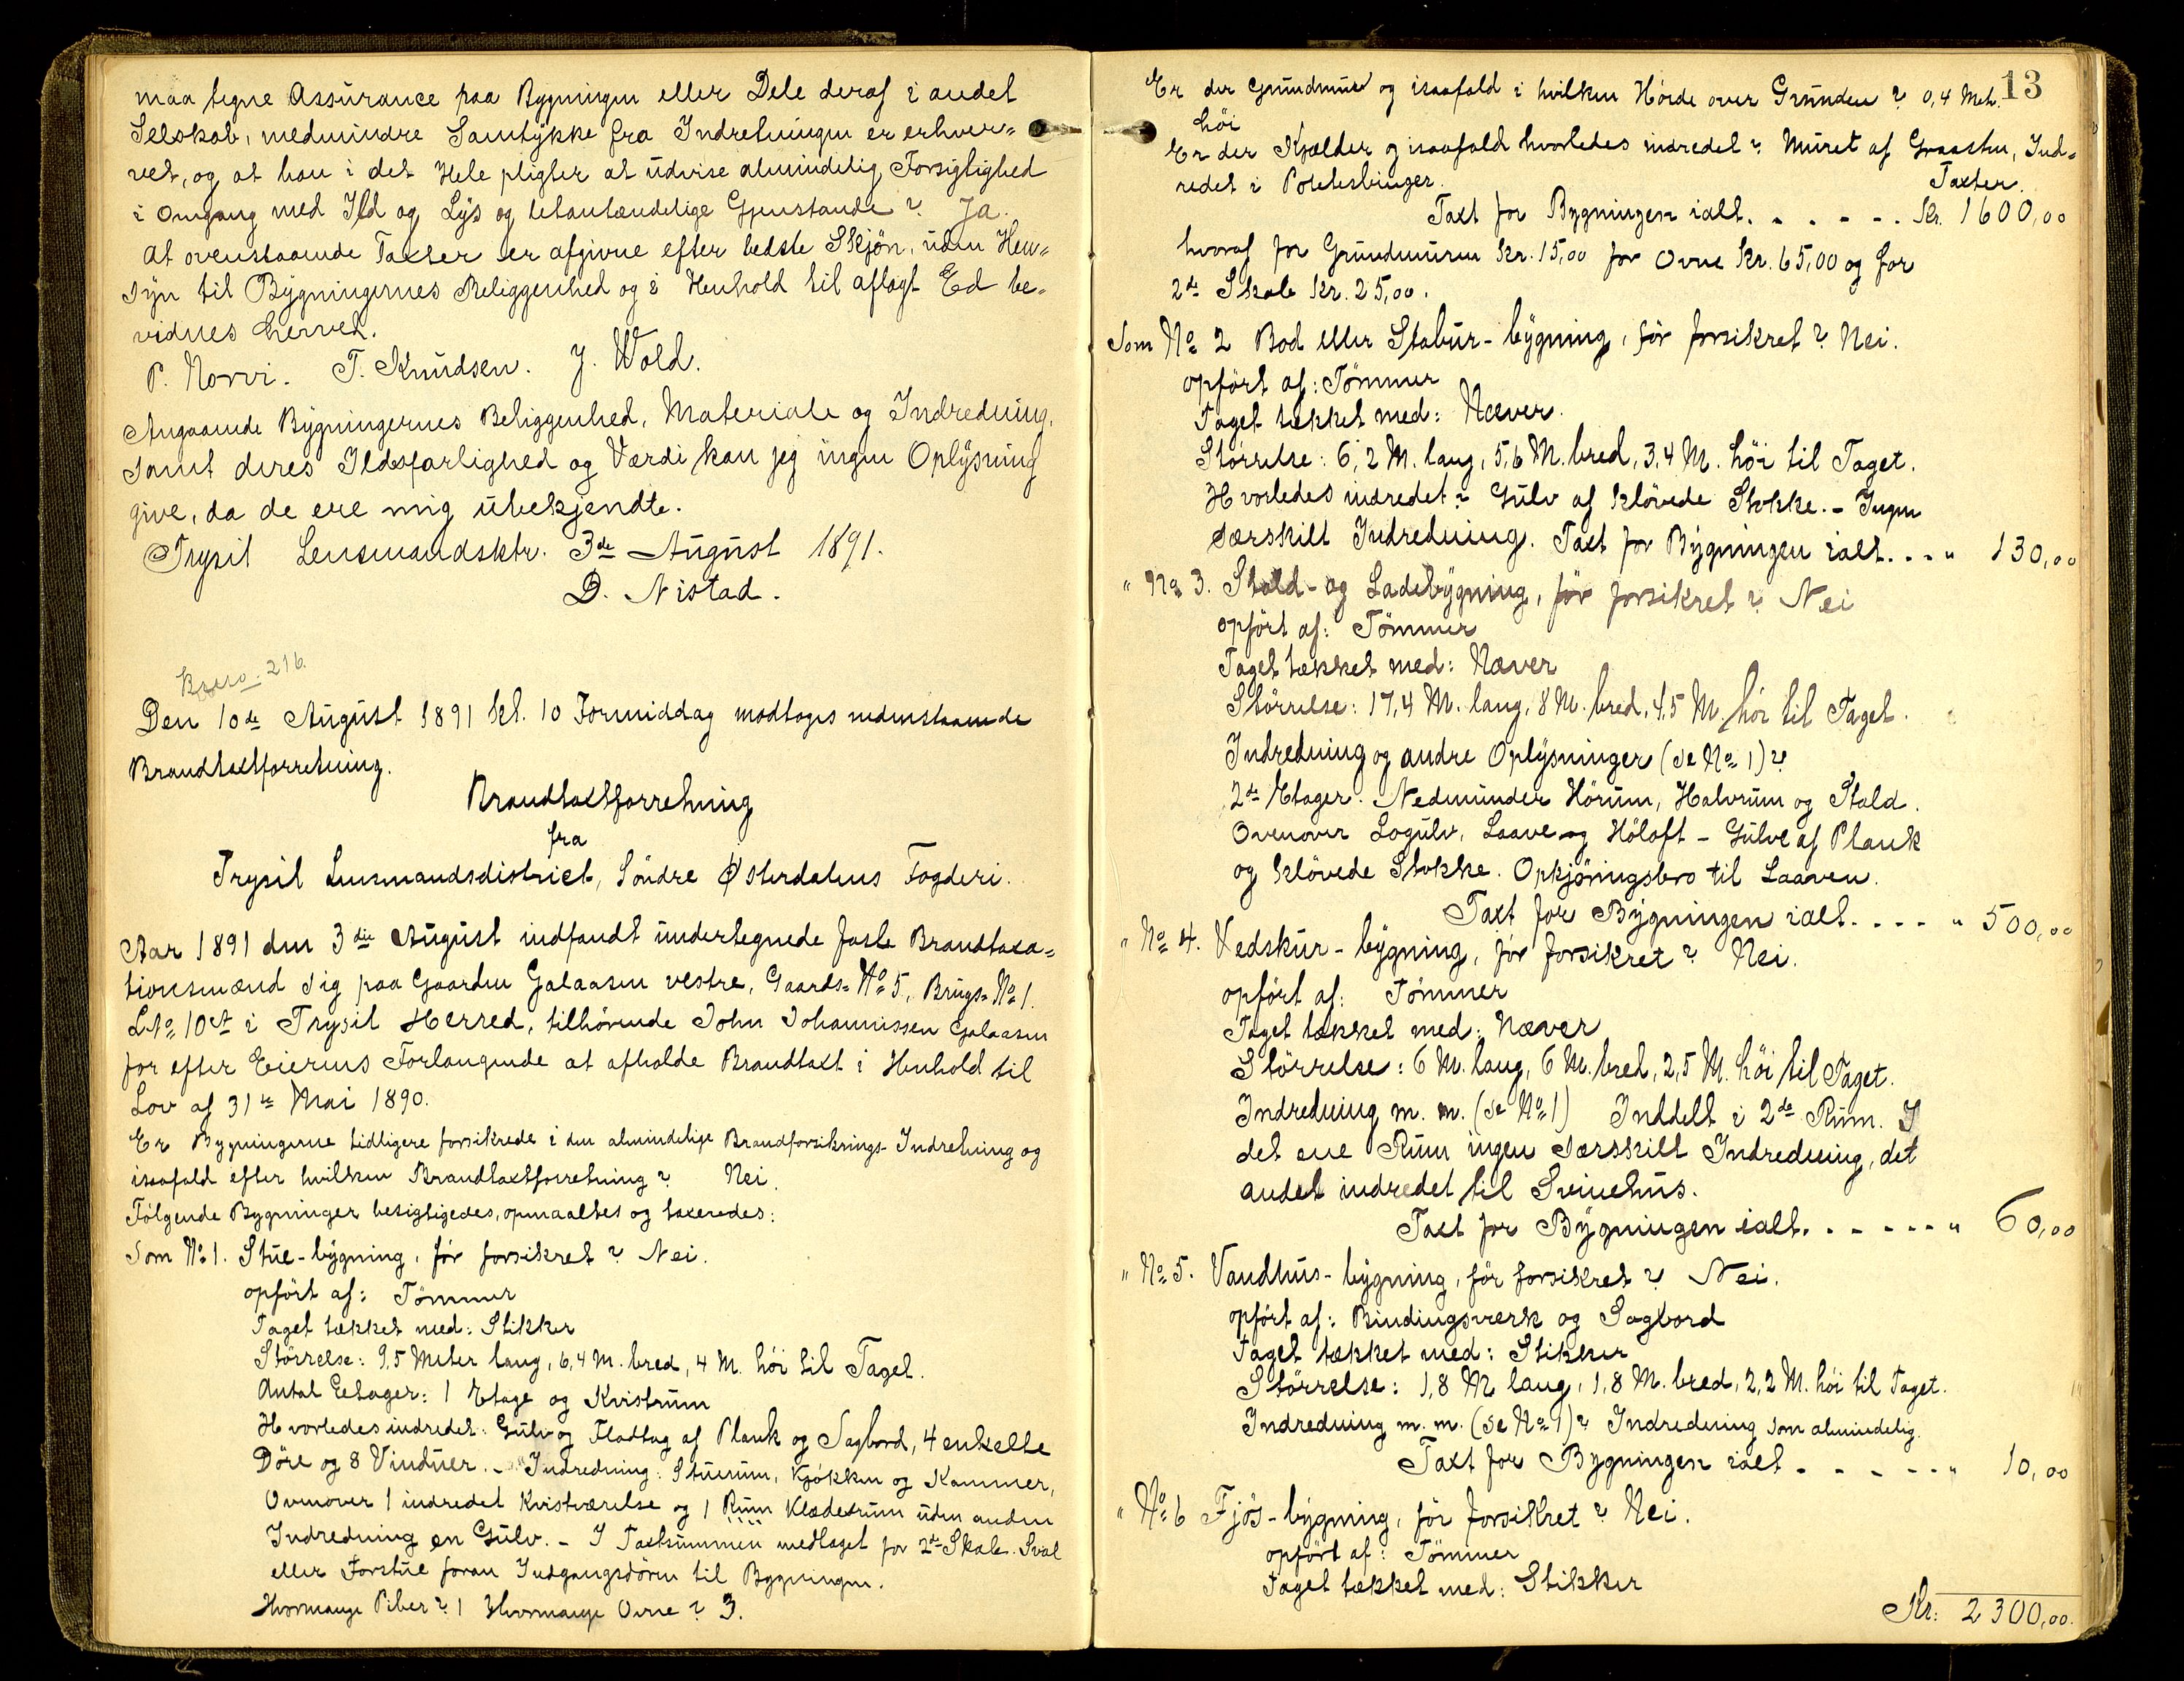 maa tegne Assurance paa Bygningen eller Dele deraf i andet
Selskab, medmindre Samtykke fra Indretningen er erhver=
vet, og at han i det Hele pligter at udvise almindelig Forsigtighed
i Omgang med Ild og Lys og letantændelige Gjenstande? Ja.
At ovenstaaende Taxter er afgivne efter bedste Skjön, uden Hen=
syn til Bygningernes Beliggenhed og i Henhold til aflagt Ed be=
vidnes herved.
P. Norvi. T. Knudsen. J. Wold.
Angaaende Bygningernes Beliggenhed, Materiale og Indredning,
samt deres Ildsfarlighed og Værdi kan jeg ingen Oplysning
give, da de ere mig ubekjendte.
Trysil Lensmandsktr. 3de August 1891.
D. Nistad.
216.
Den 10de August 1891 kl. 10 Formiddag modtoges nedenstaaende
Brandtaxtforretning.
Brandtaxtforretning
fra
Trysil Lensmandsdistrict, Söndre Østerdalens Fogderi.
Aar 1891 den 3die August indfandt undertegnede faste Brandtaxa=
tionsmænd sig paa Gaarden Galaasen vestre, Gaards=No 5, Brugs=No 1.
LNo 10a i Trysil Herred, tilhörende John Johannissen Galaasen
for efter Eierens Forlangende at afholde Brandtaxt i Henhold til
Lov af 31te Mai 1890.
Er Bygningerne tidligere forsikrede i den almindelige Brandforsikrings-Indretning og
isaafald efter hvilken Brandtaxtforretning? Nei.
Fölgende Bygninger besigtigedes, opmaaltes og taxeredes:
Som No 1. Stue-bygning, för forsikret? Nei.
opfört af: Tömmer
Taget tækket med: Stikker
Störrelse: 9,5 Meter lang, 6,4 M. bred, 4 M. höi til Taget.
Antal Eetager: 1 Etage og Kvistrum
Hvorledes indredet: Gulv og Fladtag af Plank og Sagbord, 4 enkelte
Döre og 8 Vinduer. - Indredning: Stuerum, Kjökken og Kammer,
Ovenover 1 indredet Kvistværelse og 1 Rum Klæderum uden anden
Indredning en Gulv. - I Taxtsummen medtaget for 2de Skabe. Sval
eller Forstue foran Indgangsdören til Bygningen.
Hvormange Piber? 1 Hvormange Ovne? 3.
13
Er der Grundmur og isaafald i hvilken Höide over Grunden? 0,4 Met.
höi
Er der Kjælder og isaafald hvorledes indredet? Muret af Graasten, Ind=
redet i Potetesbinger.
Taxter.
Taxt for Bygningen ialt. - - - - - Kr. 1600,00
hvoraf for Grundmuren Kr. 15,00 for Ovne Kr. 65,00 og for
2de Skabe Kr. 25,00.
Som No 2 Bod eller Stabur-bygning, för forsikret? Nei.
opfört af: Tömmer
Taget tækket med: Næver.
Störrelse: 6,2 M. lang, 5,6 M. bred, 3,4 M. höi til Taget.
Hvorledes indredet? Gulv af klövede Stokke. - Ingen
særskilt Indredning. Taxt for Bygningen ialt. - - " 130,00
" No 3. Stald- og Ladebygning, för forsikret? Nei
opfört af: Tömmer
Taget tækket med: Næver
Störrelse: 17,4 M. lang, 8 M. bred, 4,5 M. höi til Taget.
Indredning og andre Oplysninger (se No 1)?
2de Etager. Nedenunder Hörum, Halvrum og Stald.
Ovenover Logulv, Laave og Höloft - Gulve af Plank
og klövede Stokke. Opkjöringsbro til Laaven.
Taxt for Bygningen ialt. - - - " 500,00
" No 4. Vedskur-bygning, för forsikret? Nei.
opfört af: Tömmer
Taget tækket med: Næver
Störrelse: 6 M. lang, 6 M. bred, 2,5 M. höi til Taget.
Indredning m. m. (se No 1) Inddelt i 2de Rum. I
det ene Rum ingen særskilt Indredning, det
andet indredet til Svinehus.
Taxt for Bygningen ialt. - - - - - " 60,00
" No 5. Vandhus-bygning, för forsikret? Nei.
opfört af: Bindingsverk og Sagbord
Taget tækket med: Stikker
Störrelse: 1,8 M lang, 1,8 M. bred, 2,2 M. höi til Taget.
Indredning m. m. (se No 1)? Indredning som almindelig.
Taxt for Bygningen ialt - - - - - " 10,00
" No 6 Fjös-bygning, för forsikret? Nei.
opfört af: Tömmer
Taget tækket med: Stikker
Kr: 2300,00.